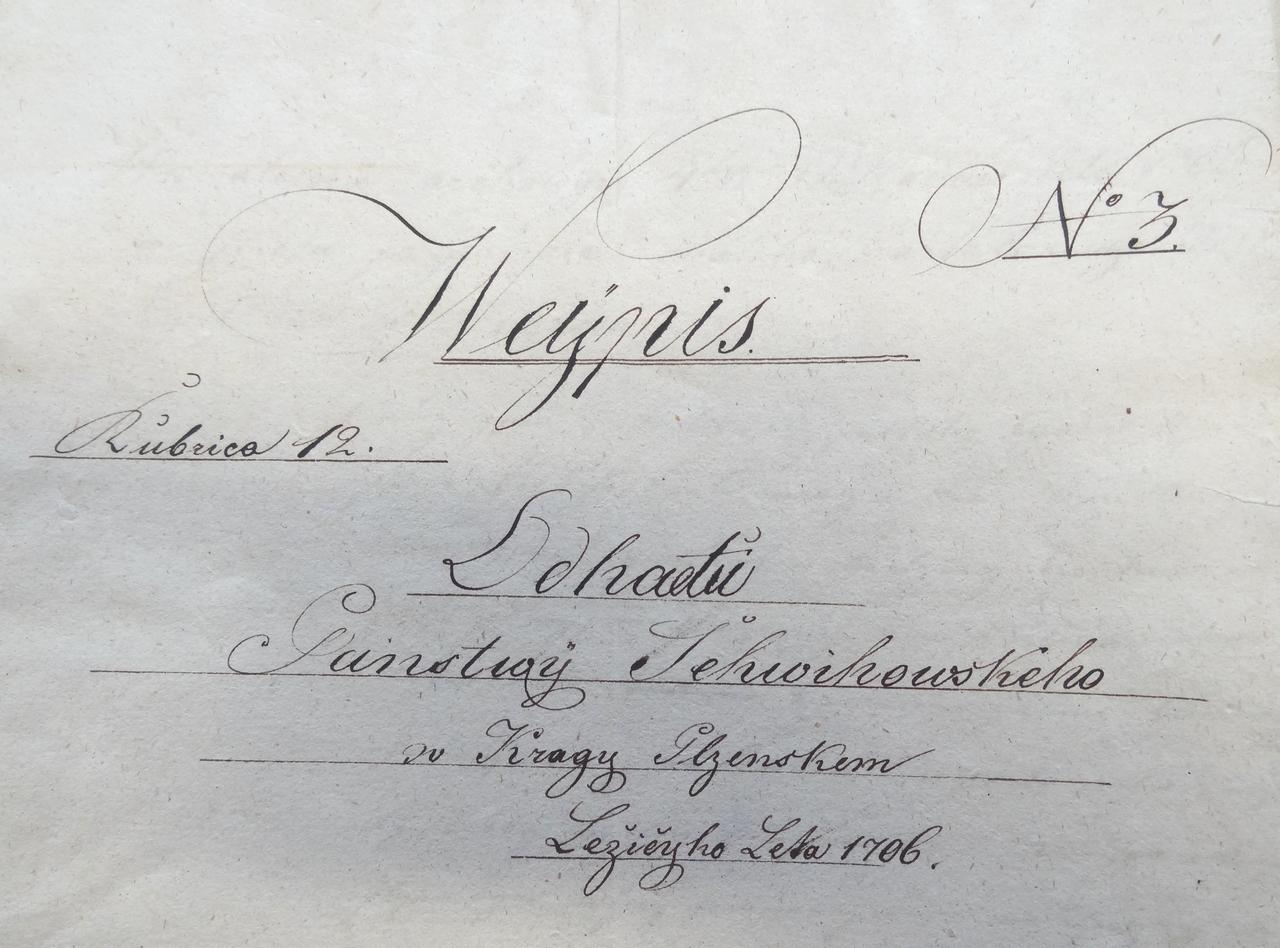 No 3.
Weÿpis.
Rŭbrica 12.
Odhadŭ
Panstwÿ Schwihowskeho
w Kragy Plzenskem
Ležičyho Leta 1706.